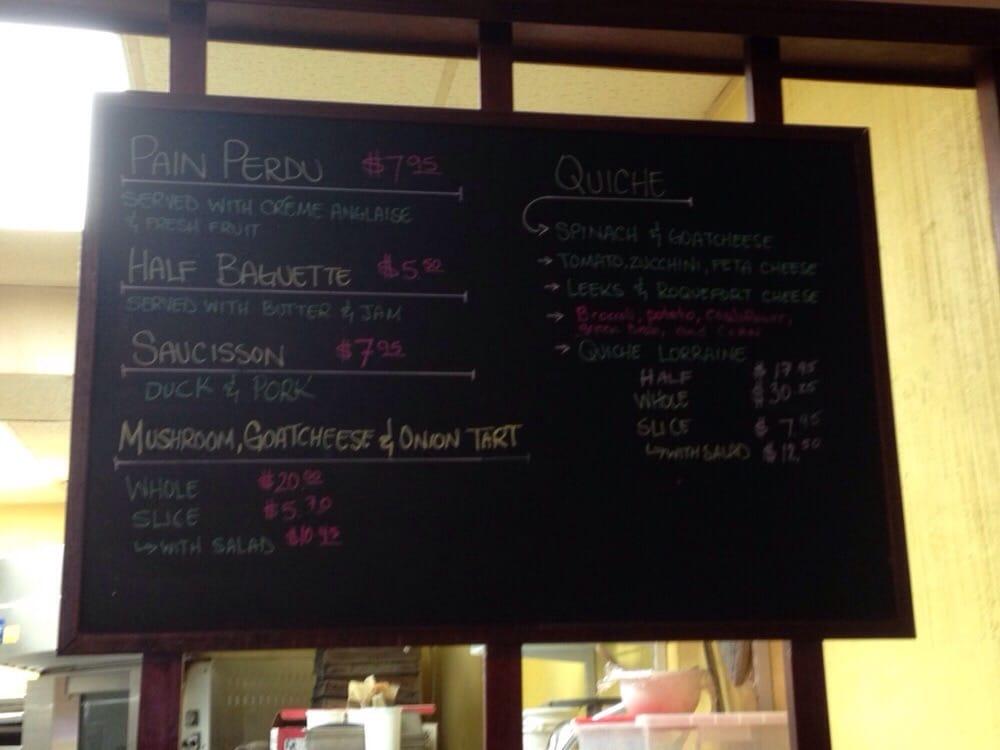 PAIN PERDU $7.95
SERVED WITH CRÈME ANGLAISE
& FRESH FRUIT
HALF BAGUETTE $5.50
SERVED WITH BUTTER & JAM
SAUCISSON $7.95
DUCK & PORK
MUSHROOM, GOATCHEESE & ONION TART
WHOLE $20.00
SLICE $5.70
↳ WITH SALAD $10.95
QUICHE
→ SPINACH & GOATCHEESE
→ TOMATO, ZUCCHINI, FETA CHEESE
→ LEEKS & ROQUEFORT CHEESE
→ Broccoli, potato, Cauliflower,
green bean, and Corn
→ QUICHE LORRAINE
HALF $17.95
WHOLE $30.25
SLICE $7.95
↳ WITH SALAD $12.50